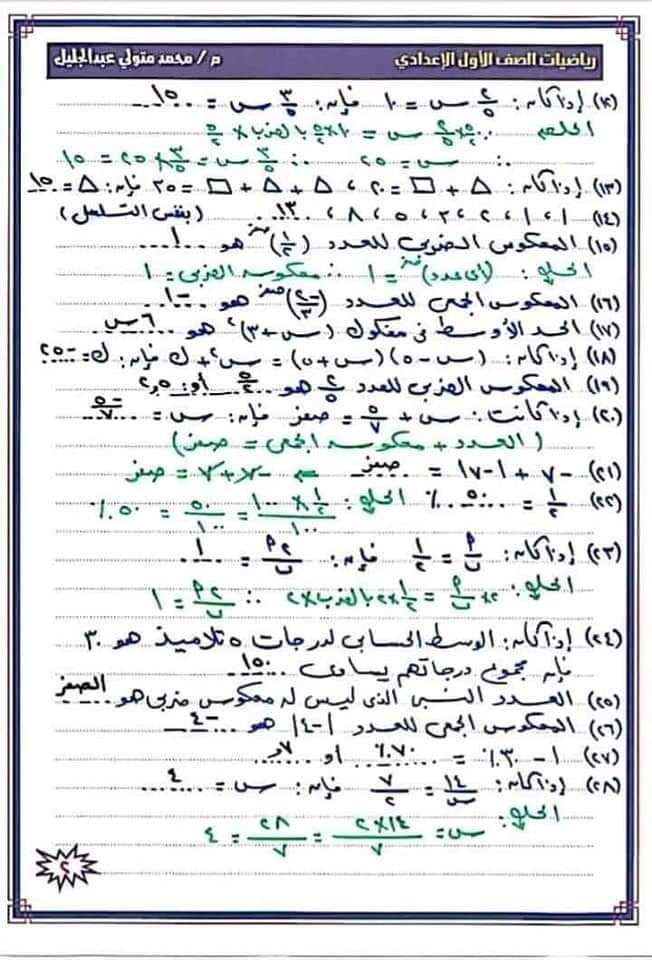 رياضيات الصف الأول الإعدادي
م / محمد متولي عبدالجليل
(١٢) إذا كان: ٢/٥ س = ١٠ فإن: ٣/٥ س = ١٥
الحل: ∵ ٥/٢ × ٢/٥ س = ١٠ × ٥/٢ بالضرب × ٥/٢
∴ س = ٢٥ ∴ ٣/٥ س = ٣/٥ × ٢٥ = ١٥
(١٣) إذا كان: △ + □ = ٢٠ ، △ + △ + □ = ٣٥ فإن: △ = ١٥
(١٤) ١ ، ١ ، ٢ ، ٣ ، ٥ ، ٨ ، ١٣ (بنفس التسلسل)
(١٥) المعكوس الضربى للعدد (١/٢)^صفر هو ١
الحل: (أى عدد)^صفر = ١ ∴ معكوسه الضربى = ١
(١٦) المعكوس الجمعى للعدد (-٢/٣)^صفر هو -١
(١٧) الحد الأوسط فى مفكوك (س + ٣)² هو ٦س
(١٨) إذا كان: (س - ٥) (س + ٥) = س² + ك فإن: ك = -٢٥
(١٩) المعكوس الضربى للعدد ٢/٥ هو ٥/٢ أو: ٢,٥
(٢٠) إذا كانت: س + ٥/٧ = صفر فإن: س = -٥/٧
(العدد + معكوسه الجمعى = صفر)
(٢١) -٧ + |-٧| = صفر ⇐ -٧ + ٧ = صفر
(٢٢) ١/٢ = ٥٠ ٪ الحل: ١/٢ × ١٠٠ / ١٠٠ = ٥٠/١٠٠ = ٥٠٪
(٢٣) إذا كان: أ/ب = ١/٢ فإن: ٢أ/ب = ١
الحل: ٢ × أ/ب = ١/٢ × ٢ بالضرب × ٢ ∴ ٢أ/ب = ١
(٢٤) إذا كان: الوسط الحسابى لدرجات ٥ تلاميذ هو ٣٠
فإن مجموع درجاتهم يساوى ١٥٠
(٢٥) العدد النسبى الذى ليس له معكوس ضربى هو الصفر
(٢٦) المعكوس الجمعى للعدد |-٤| هو -٤
(٢٧) ١ - ٣٠٪ = ٧٠٪ أو ٠,٧
(٢٨) إذا كان: ١٤/س = ٧/٢ فإن: س = ٤
الحل: س = ١٤ × ٢ / ٧ = ٢٨/٧ = ٤
٢